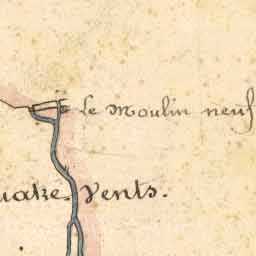 Le Moulin neuf
uatre. Vents.